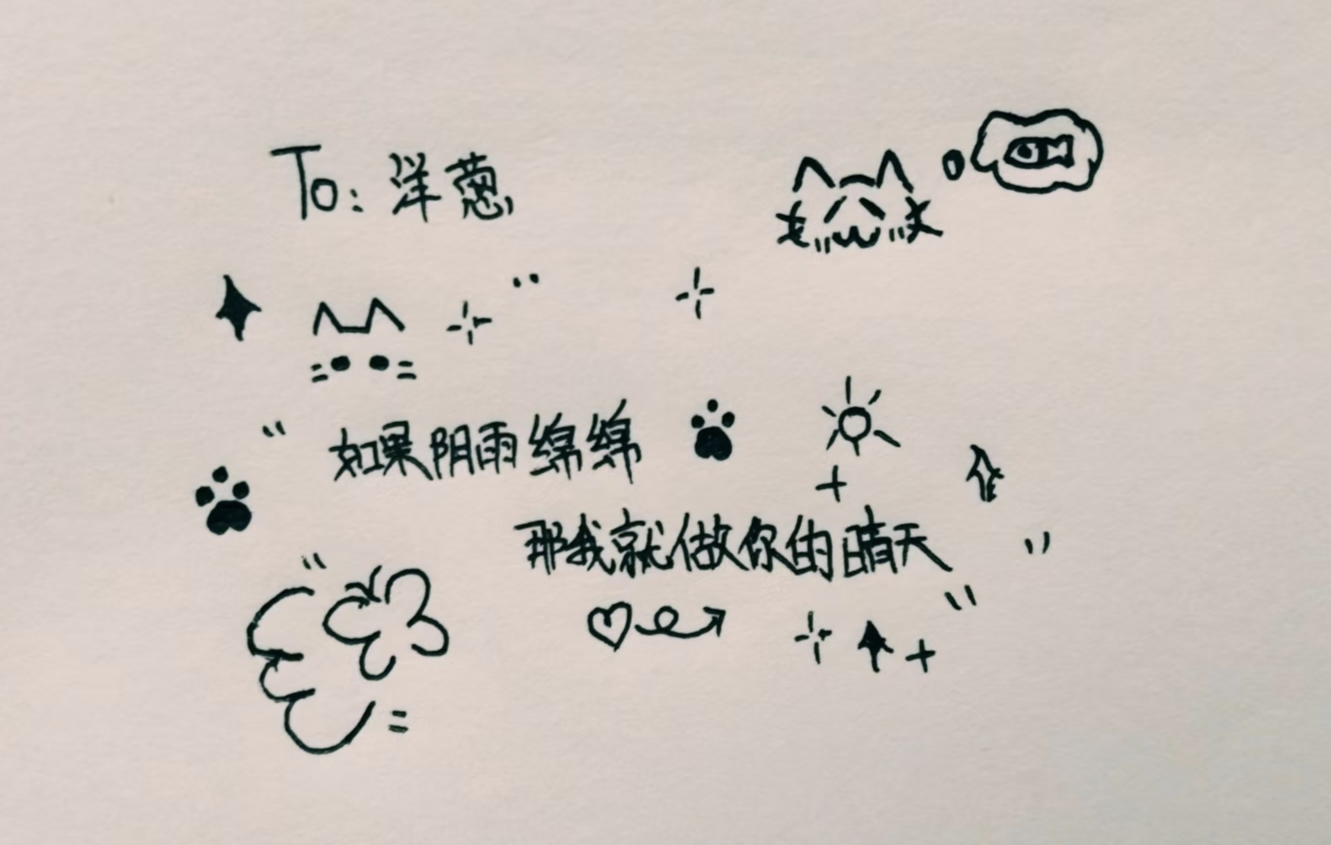 To: 洋葱
如果阴雨绵绵
那我就做你的晴天